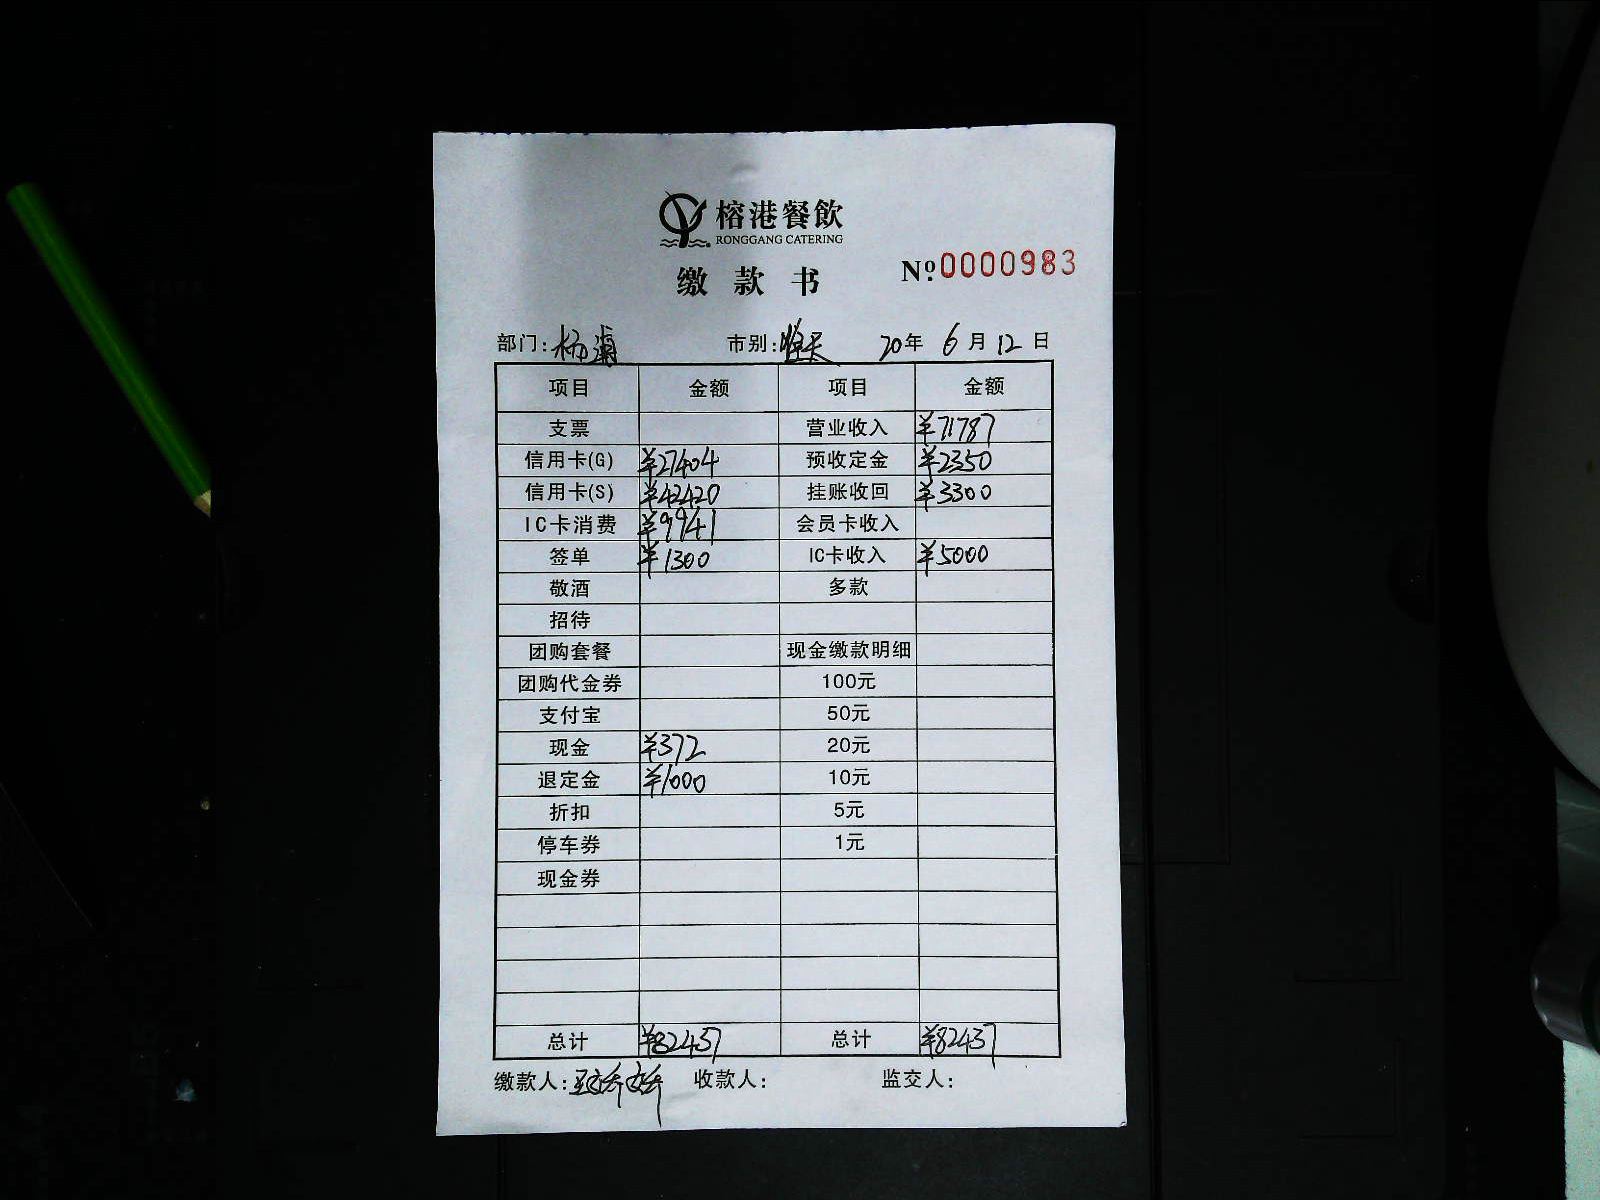 榕港餐飲
RONGGANG CATERING
缴款书 Nº.0000983
部门:杨浦 市别:全天 20年 6月12日
项目 金额 项目 金额
支票 营业收入 ¥71787
信用卡(G) ¥27404 预收定金 ¥2350
信用卡(S) ¥42420 挂账收回 ¥3300
IC卡消费 ¥9941 会员卡收入
签单 ¥1300 IC卡收入 ¥5000
敬酒 多款
招待
团购套餐 现金缴款明细
团购代金券 100元
支付宝 50元
现金 ¥372 20元
退定金 ¥1000 10元
折扣 5元
停车券 1元
现金券
总计 ¥82437 总计 ¥82437
缴款人: 收款人: 监交人: